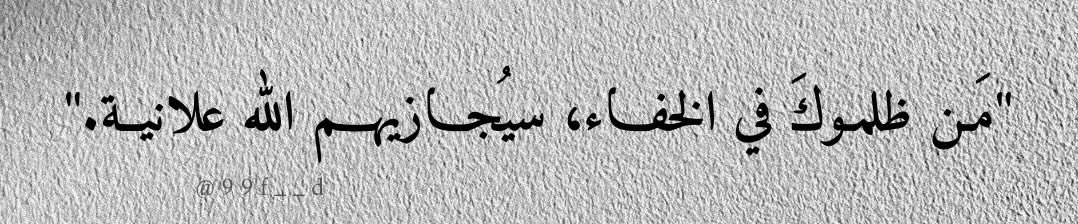 "مَـن ظلمـوكَ في الخفـاء، سيُجـازيهـم الله علانيـة."
@99f__d